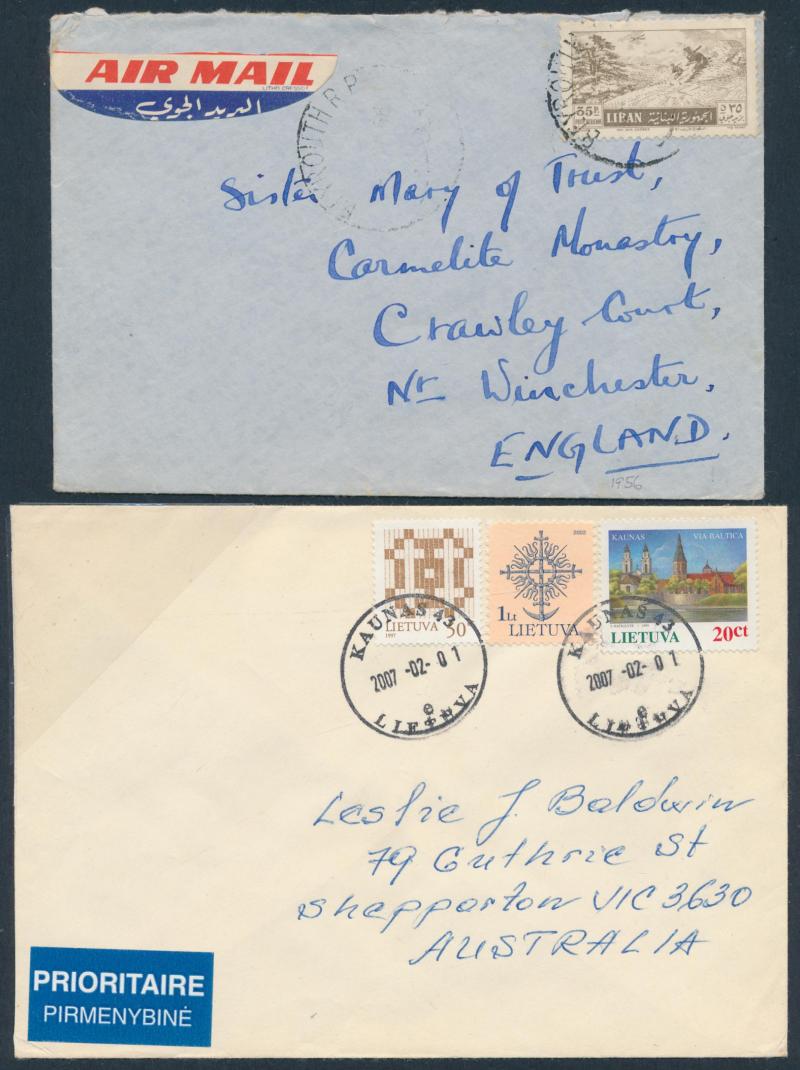 AIR MAIL
LITHO CRESSOT
البريد الجوي
BEYROUTH R P
BEYROUTH
35 P
LIBAN الجمهورية اللبنانية
٣٥
Sister Mary of Trust,
Carmelite Monastry,
Crawley Court,
Nr Winchester,
ENGLAND.
1956
LIETUVA 50
1997
2002
1 Lt
LIETUVA
KAUNAS VIA BALTICA
LIETUVA 20ct
KAUNAS 43
2007 -02- 01
e
LIETUVA
KAUNAS 43
2007 -02- 01
e
LIETUVA
Leslie J. Baldwin
79 Guthrie St
Shepparton VIC 3630
AUSTRALIA
PRIORITAIRE
PIRMENYBINĖ